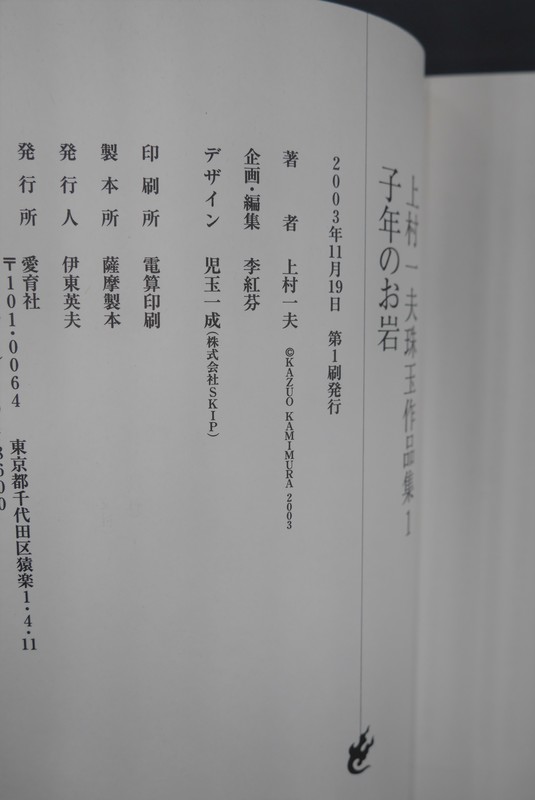 上村一夫珠玉作品集1
子年のお岩
2003年11月19日 第1刷発行
著者 上村一夫 ©KAZUO KAMIMURA 2003
企画・編集 李紅芬
デザイン 児玉一成(株式会社SKIP)
印刷所 電算印刷
製本所 薩摩製本
発行人 伊東英夫
発行所 愛育社
〒101・0064 東京都千代田区猿楽1・4・11